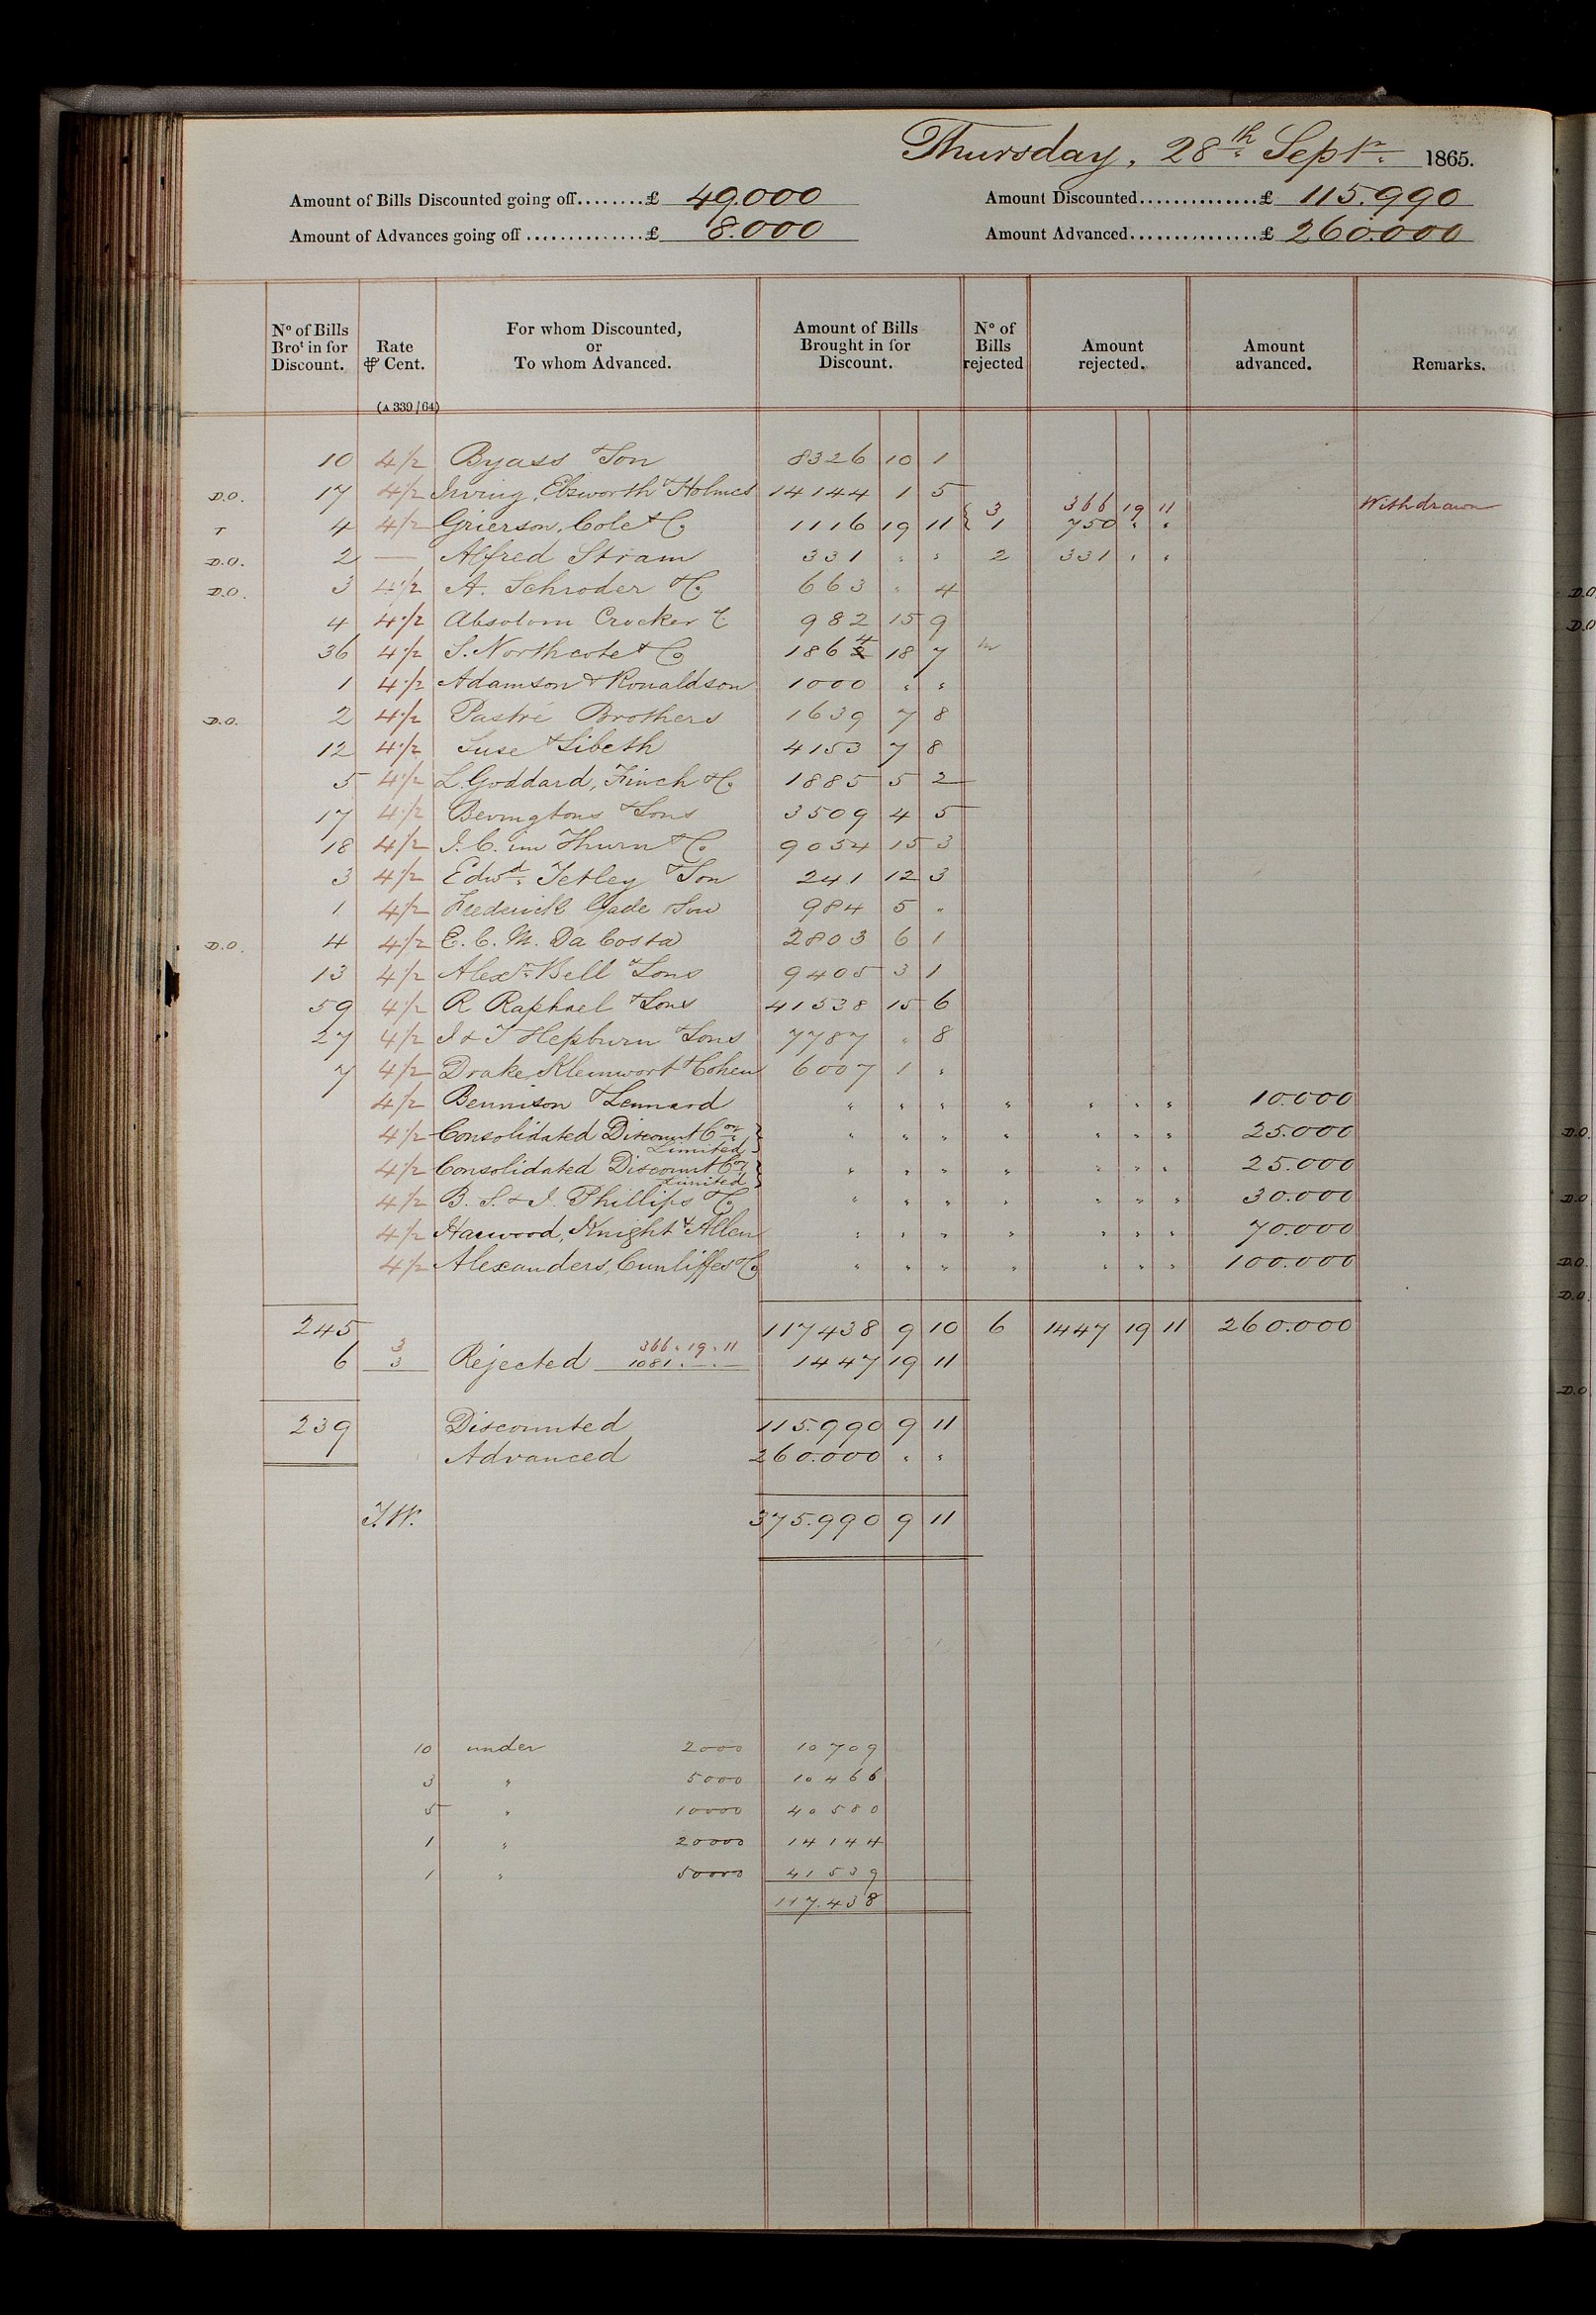 Thursday, 28th Septr. 1865.
Amount of Bills Discounted going off........£ 49.000 Amount Discounted..............£ 115.990
Amount of Advances going off..............£ 8.000 Amount Advanced...............£ 260.000
No of Bills Brot in for Discount. Rate ⅌ Cent. (A 339/64) For whom Discounted, or To whom Advanced. Amount of Bills Brought in for Discount. No of Bills rejected Amount rejected. Amount advanced. Remarks.
10 4½ Byass & Son 8326 10 1
D.O. 17 4½ Irving, Ebsworth & Holmes 14144 1 5
3 366 19 11 Withdrawn
T 4 4½ Grierson, Cole & Co 1116 19 11 { 1 750 " "
D.O. 2 — Alfred Stram 331 " " 2 331 " "
D.O. 3 4½ A. Schroder & Co 663 " 4
4 4½ Absolom Crocker & Co 982 15 9
36 4½ S. Northcote & Co 1864 18 7
1 4½ Adamson & Ronaldson 1000 " "
D.O. 2 4½ Pastré Brothers 1639 7 8
12 4½ Suse & Sibeth 4153 7 8
5 4½ L. Goddard, Finch & Co 1885 5 2
17 4½ Bevingtons & Sons 3509 4 5
18 4½ J. C. im Thurn & Co 9054 15 3
3 4½ Edwd. Tetley & Son 241 12 3
1 4½ Frederick Gade & Son 984 5 "
D.O. 4 4½ E. C. M. Da Costa 2803 6 1
13 4½ Alexr. Bell & Sons 9405 3 1
59 4½ R Raphael & Sons 41538 15 6
27 4½ J & T Hepburn & Sons 7787 " 8
7 4½ Drake Kleinwort & Cohen 6007 1 "
4½ Bennison & Lennard " " " " " " " 10.000
4½ Consolidated Discount Con. Limited } " " " " " " " 25.000
4½ Consolidated Discount Con. Limited } " " " " " " " 25.000
4½ B. S. & J. Phillips & Co " " " " " " " 30.000
4½ Harwood, Knight & Allen " " " " " " " 70.000
4½ Alexanders, Cunliffes & Co " " " " " " " 100.000
245 117438 9 10 6 1447 19 11 260.000
3 366 . 19 . 11
6 3 Rejected 1081 . - . - 1447 19 11
239 Discounted 115.990 9 11
Advanced 260.000 " "
T.W. 375.990 9 11
10 under 2000 10709
3 " 5000 10466
5 " 10000 40580
1 " 20000 14144
1 " 50000 41539
117.438
D.O.
D.O
D.O.
D.O
D.O.
D.O.
D.O